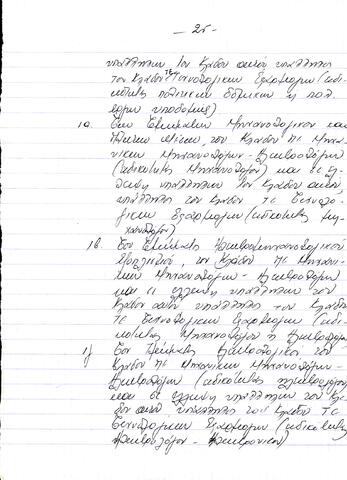 - 25 -
υπαλλήλων του Κλάδου αυτού υπάλληλος
του Κλάδου ΤΕ Τεχνολογικών Εφαρμογών (ειδι-
κότητας πολιτικών δομικών ή πολ.
έργων υποδομής)
ια. Στο Τμήματος Μηχανολογικού και
του Κλάδου ΠΕ Μηχα-
νικών Μηχανολόγων - Ηλεκτρολόγων
(ειδικότητας Μηχανολόγου) και σε έλ-
λειψη υπαλλήλων του Κλάδου αυτού,
υπάλληλος του Κλάδου ΤΕ Τεχνολο-
γικών Εφαρμογών (ειδικότητας Μη-
χανολόγου)
ιβ. Στο Τμήματος Ηλεκτρομηχανολογικού
Εξοπλισμού, του Κλάδου ΠΕ Μηχανι-
κών Μηχανολόγων - Ηλεκτρολόγων
και σε έλλειψη υπαλλήλων του
Κλάδου αυτού υπάλληλος του Κλάδου
ΤΕ Τεχνολογικών Εφαρμογών (ειδι-
κότητας Μηχανολόγου ή Ηλεκτρολόγου
ιγ. Στο Τμήματος Ηλεκτρολογικού του
Κλάδου ΠΕ Μηχανικών Μηχανολόγων -
Ηλεκτρολόγων (ειδικότητας Ηλεκτρολόγου)
και σε έλλειψη υπαλλήλων του Κλά-
δου αυτού υπάλληλος του Κλάδου ΤΕ
Τεχνολογικών Εφαρμογών (ειδικότητας
Ηλεκτρολόγου - Ηλεκτρονικού)